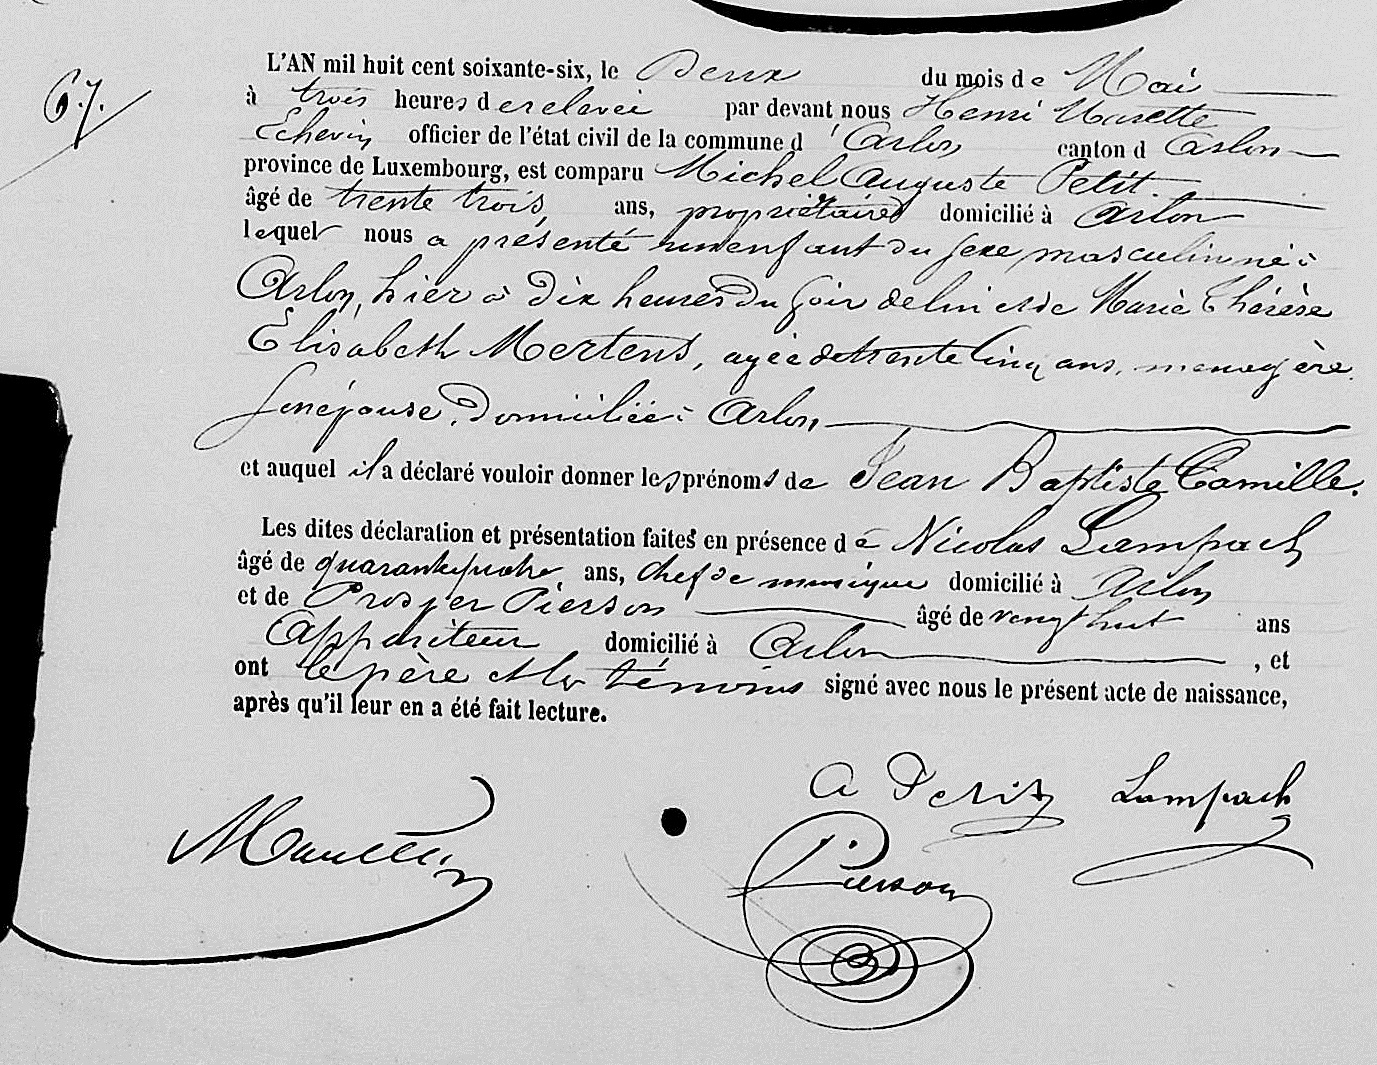 67.
L'AN mil huit cent soixante-six, le Deux du mois de Mai
à trois heures de relevée par devant nous Henri
Echevin officier de l'état civil de la commune d'Arlon canton d Arlon
province de Luxembourg, est comparu Michel Auguste Petit
âgé de trente trois ans, propriétaire domicilié à Arlon
lequel nous a présenté un enfant du sexe masculin né à
Arlon, hier à dix heures du soir de lui et de Marie Thérèse
Elisabeth Mertens, agée de trente cinq ans, menagère
son épouse, domiciliée à Arlon
et auquel il a déclaré vouloir donner les prénoms de Jean Baptiste Camille.
Les dites déclaration et présentation faites en présence de Nicolas Lampach
âgé de quarante quatre ans, chef de musique domicilié à Arlon
et de Prosper Pierson âgé de vingt huit ans
Appariteur domicilié à Arlon, et
ont le père et les témoins signé avec nous le présent acte de naissance,
après qu'il leur en a été fait lecture.
A Petit Lampach
Pierson